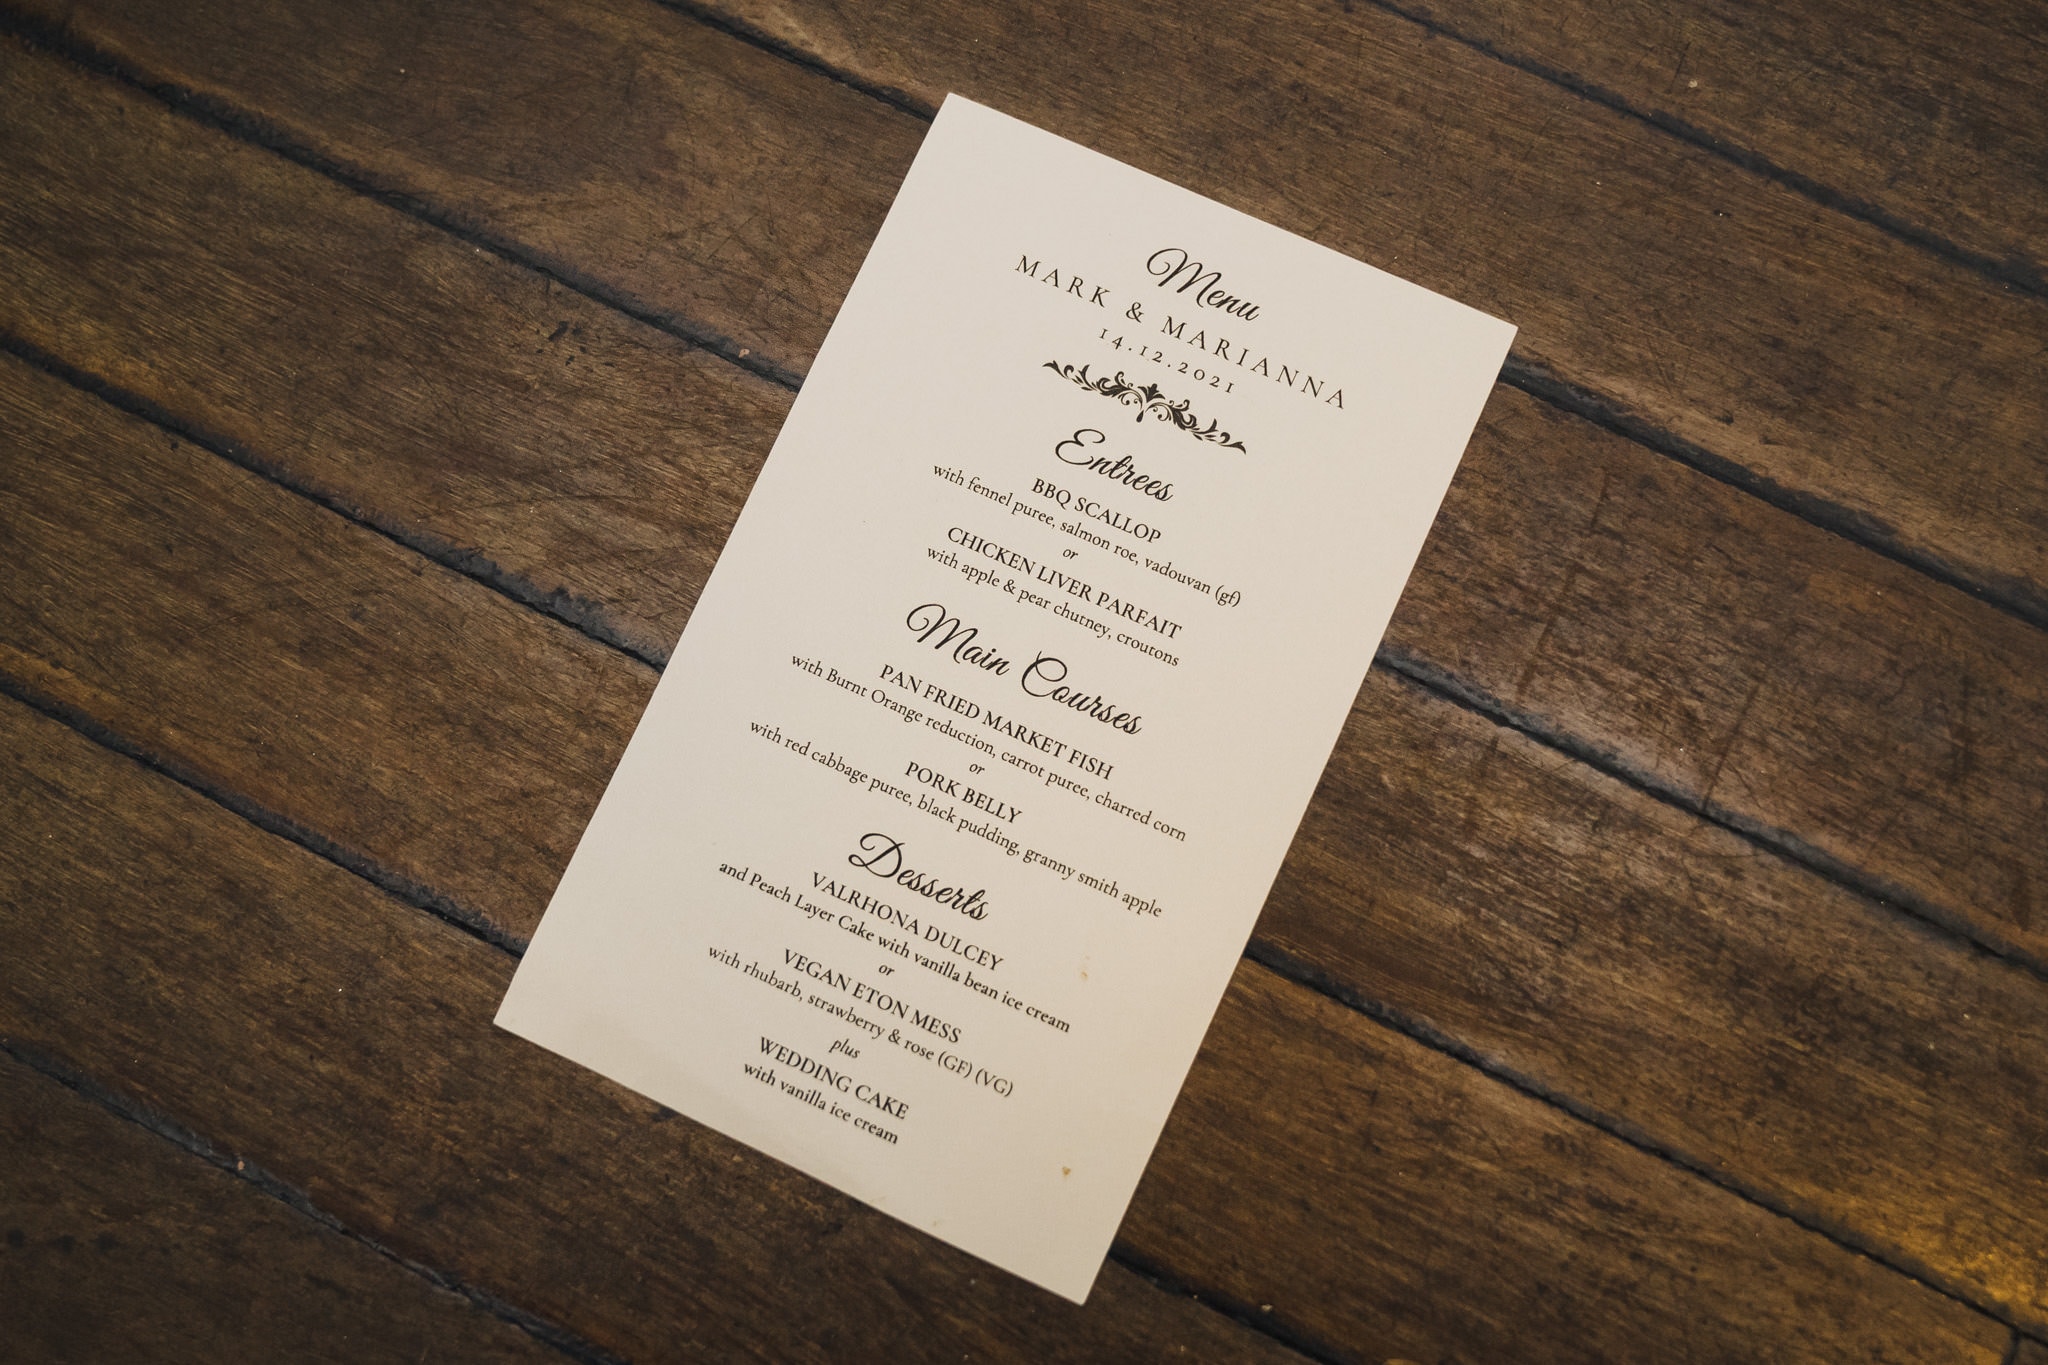 Menu
MARK & MARIANNA
14.12.2021
Entrees
BBQ SCALLOP
with fennel puree, salmon roe, vadouvan (gf)
or
CHICKEN LIVER PARFAIT
with apple & pear chutney, croutons
Main Courses
PAN FRIED MARKET FISH
with Burnt Orange reduction, carrot puree, charred corn
or
PORK BELLY
with red cabbage puree, black pudding, granny smith apple
Desserts
VALRHONA DULCEY
and Peach Layer Cake with vanilla bean ice cream
or
VEGAN ETON MESS
with rhubarb, strawberry & rose (GF) (VG)
plus
WEDDING CAKE
with vanilla ice cream